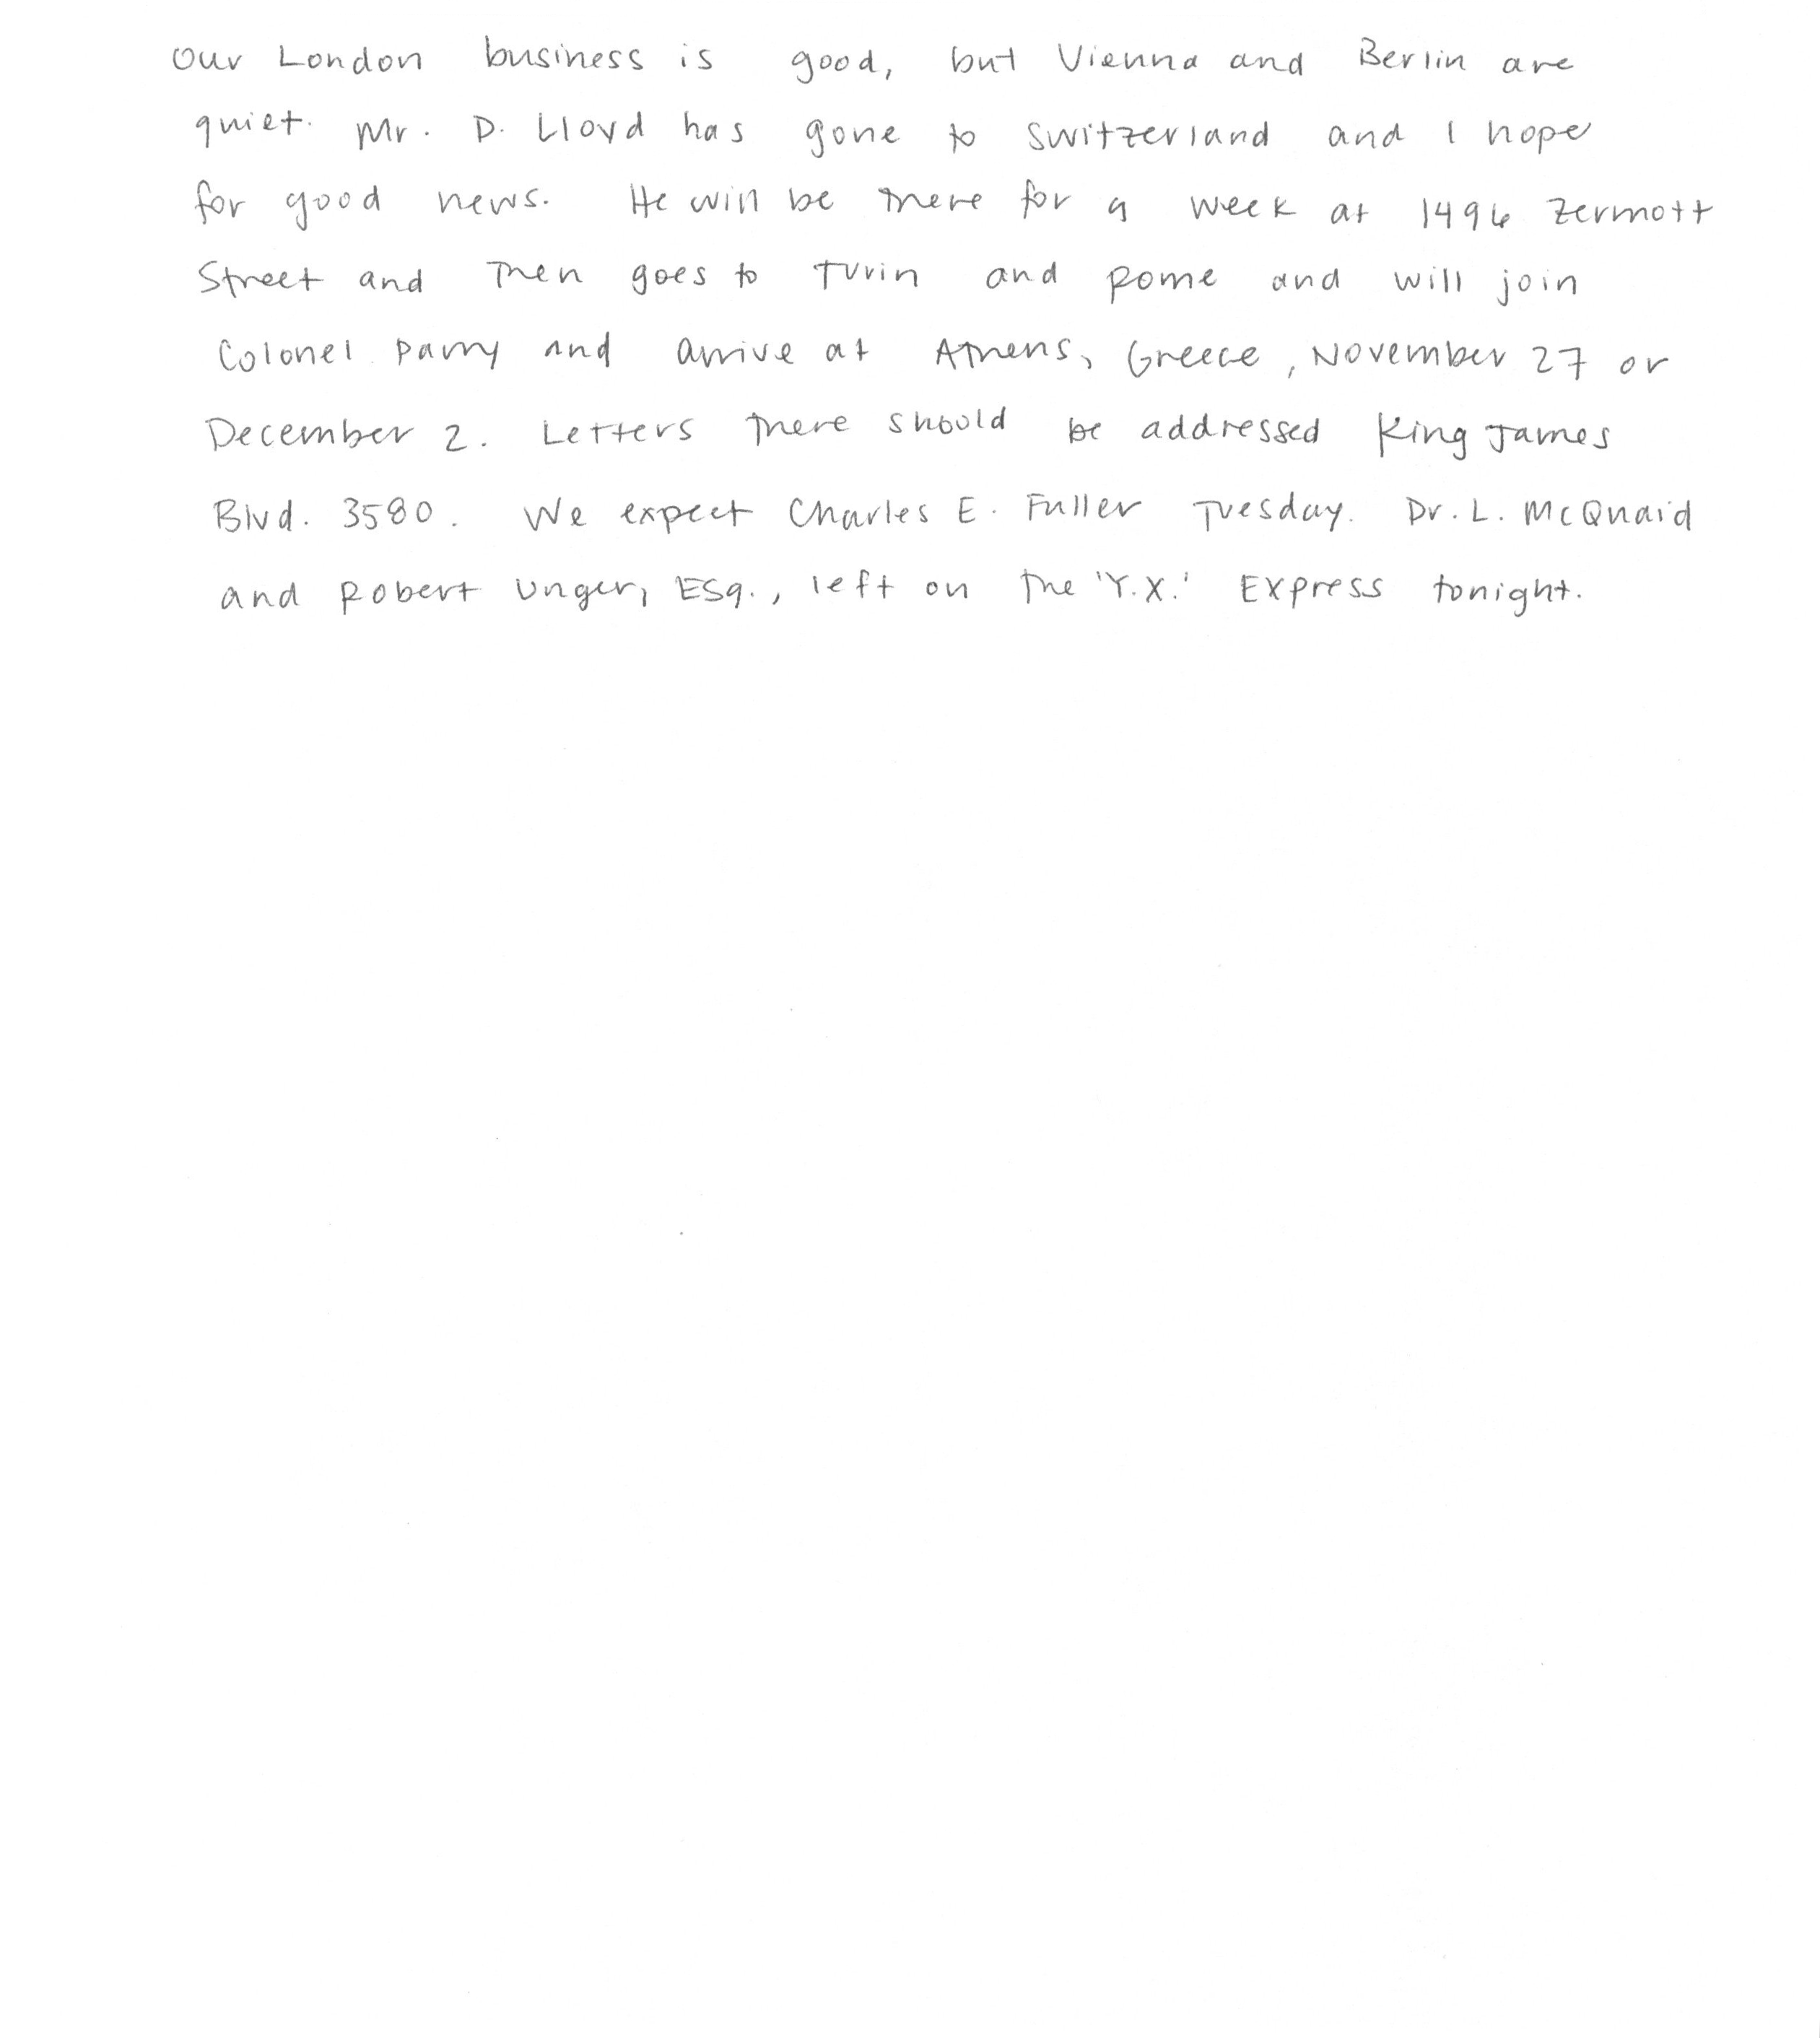 Our London business is good, but Vienna and Berlin are
quiet. Mr. D. Lloyd has gone to Switzerland and I hope
for good news. He will be there for a week at 1496 Zermott
Street and then goes to Turin and Rome and will join
Colonel Parry and arrive at Athens, Greece, November 27 or
December 2. Letters there should be addressed King James
Blvd. 3580. We expect Charles E. Fuller Tuesday. Dr. L. McQuaid
and Robert Unger, Esq., left on the 'Y.X.' Express tonight.